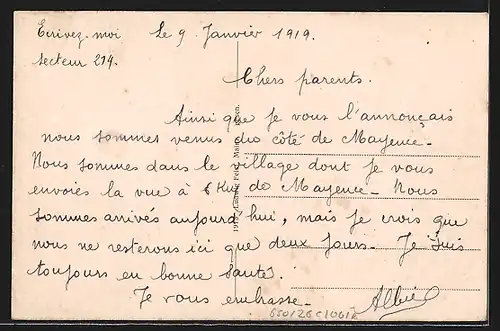 Ecrivez-moi
secteur 219.
Le 9 Janvier 1919.
Chers parents.
Ainsi que je vous l'annonçais
nous sommes venus du côté de Mayence.
Nous sommes dans le village dont je vous
envoies la vue à 6 km de Mayence. Nous
sommes arrivés aujourd'hui, mais je crois que
nous ne resterons ici que deux jours. Je suis
toujours en bonne santé.
Je vous embrasse.